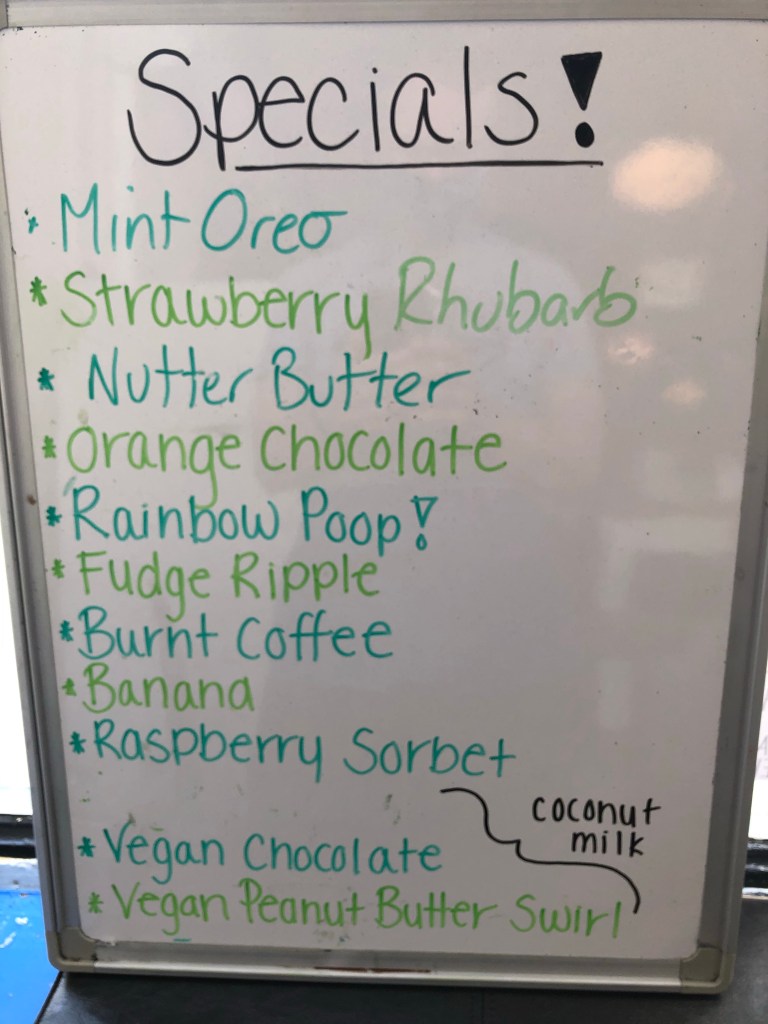 Specials!
* Mint Oreo
* Strawberry Rhubarb
* Nutter Butter
* Orange Chocolate
* Rainbow Poop!
* Fudge Ripple
* Burnt Coffee
* Banana
* Raspberry Sorbet
coconut
milk
* Vegan Chocolate
* Vegan Peanut Butter Swirl